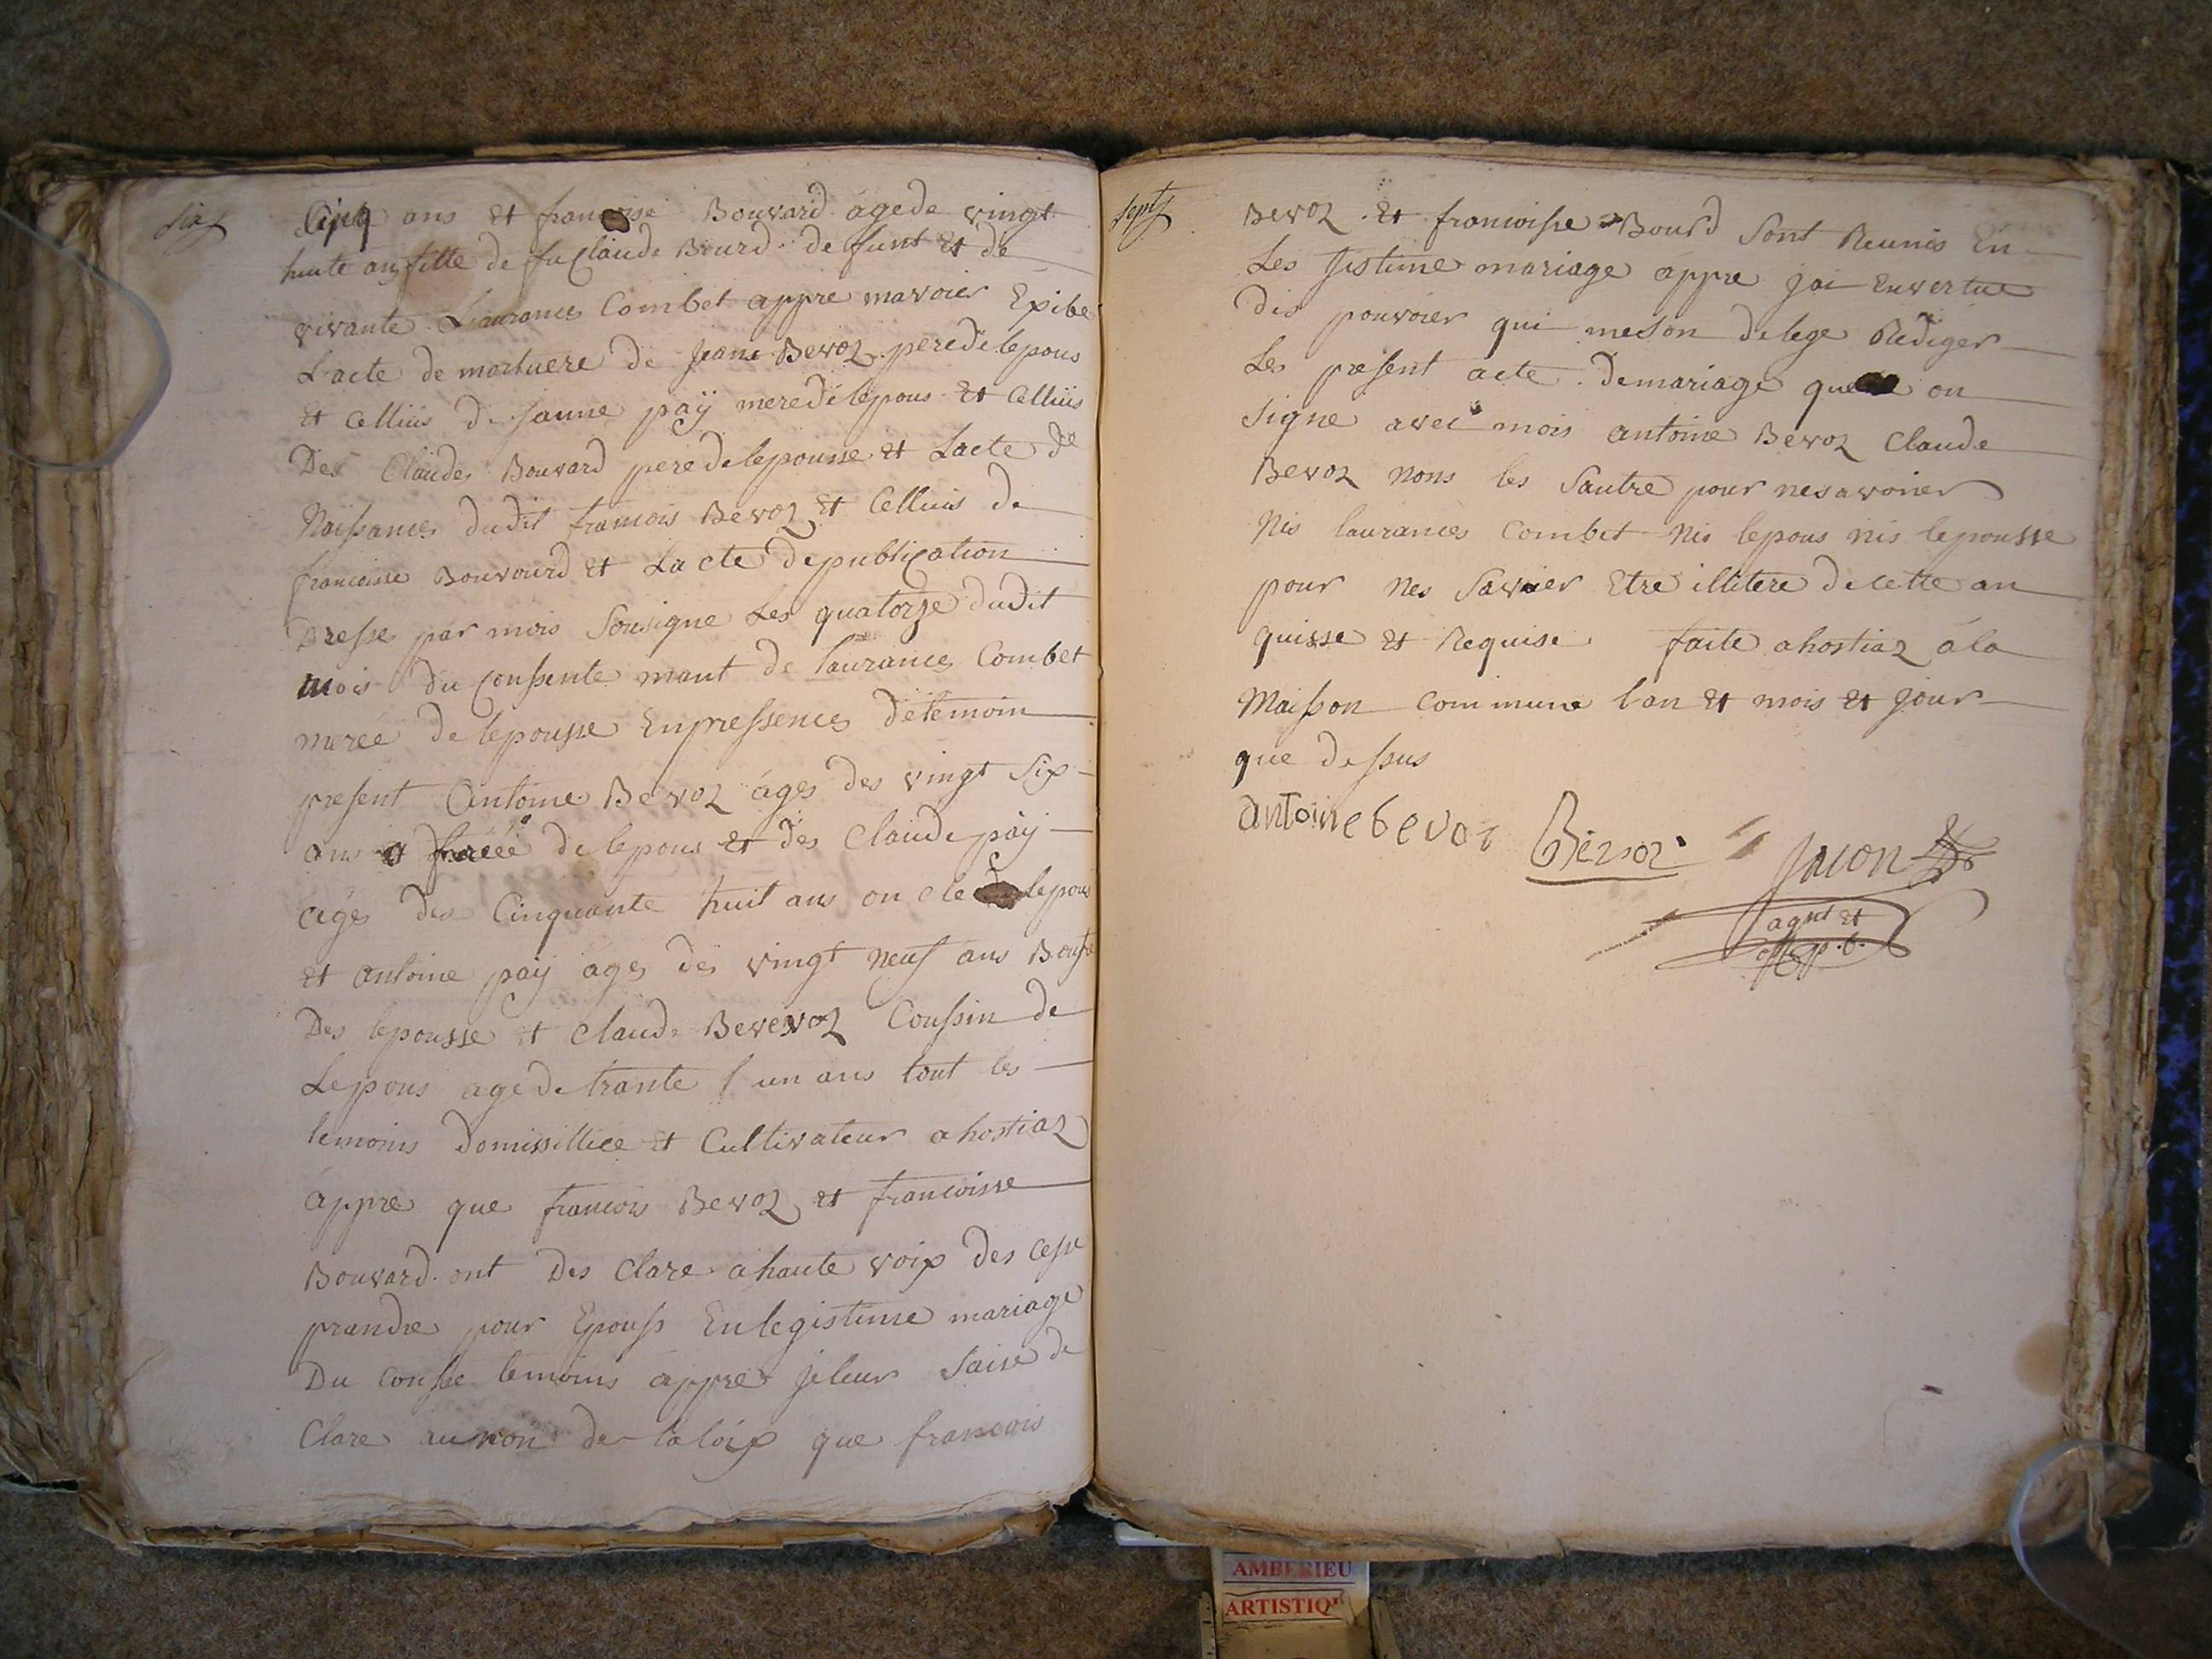 six
Cinq ans et francoise Bouvard agede vingt
huite ans fille de fu Claude Bourd defunt et de
vivante Laurances Combet appre mavoier Exibe
Lacte de mortuere de Jeane Bevoz pere de lepous
et celluis de Janne paÿ mere de lepous et celluis
Des Claudes Bouvard pere de lepousse et Lacte de
Naissances dudit francois Bevoz et Celluis de
francoisse Bouvourd et Lacte de publication
Dresse par mois Sousigne Les quatorze dudit
mois du conssente mant de Laurances Combet
mereé de lepousse En pressences de temoin
present Antoine Bevoz áges des vingt six
ans freée de lepous et des Claude paÿ
ages des Cinquante huit ans oncle lepous
et antoine paÿ ages des vingt neuf ans
Des lepousse et Claude Bevevoz Coussin de
Lepous age de trante un ans tout les
temoins domissillice et Cultivateur a hostiaz
áppre que francois Bevoz et francoisse
Bouvard ont Des Clare a haute voix des cesse
prandre pour Epouss En legistime mariage
Du consse temoins áppre je leur de
Clare au non de la loix que francois
septs
Bevoz Et francoisse Bourd Sont Reunis En
Les Jistime mariage áppre jai En vertue
dis pouvoier qui meson delege Rediger
Les present acte de mariage que on
Signe avec mois antoine Bevoz Claude
Bevoz nons les Sautre pour ne savoier
Nis laurances Combet Nis lepous nis lepousse
pour Nes Savoier Etre illitere de cette an
quisse et Requise faite a hostiaz á la
Maisson commune lan et mois et jour
que dessus
antoine bevoz Bévoz Jacon
agnt et
off. p. b.
AMBERIEU
ARTISTIQ